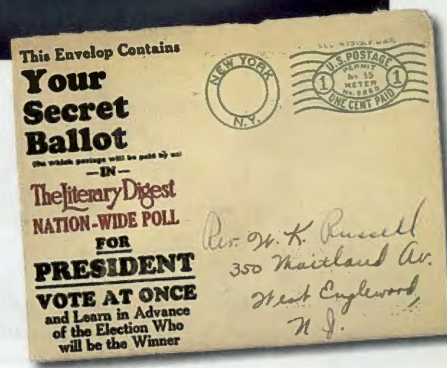 This Envelop Contains
Your
Secret
Ballot
(On which postage will be paid by us)
—IN—
The Literary Digest
NATION-WIDE POLL
FOR
PRESIDENT
VOTE AT ONCE
and Learn in Advance
of the Election Who
will be the Winner
NEW YORK
N.Y.
U.S. POSTAGE
PERMIT
No 15
METER
No.
1 1
ONE CENT PAID
Rev. W. K. Russell
350 Maitland Av.
West Englewood,
N. J.